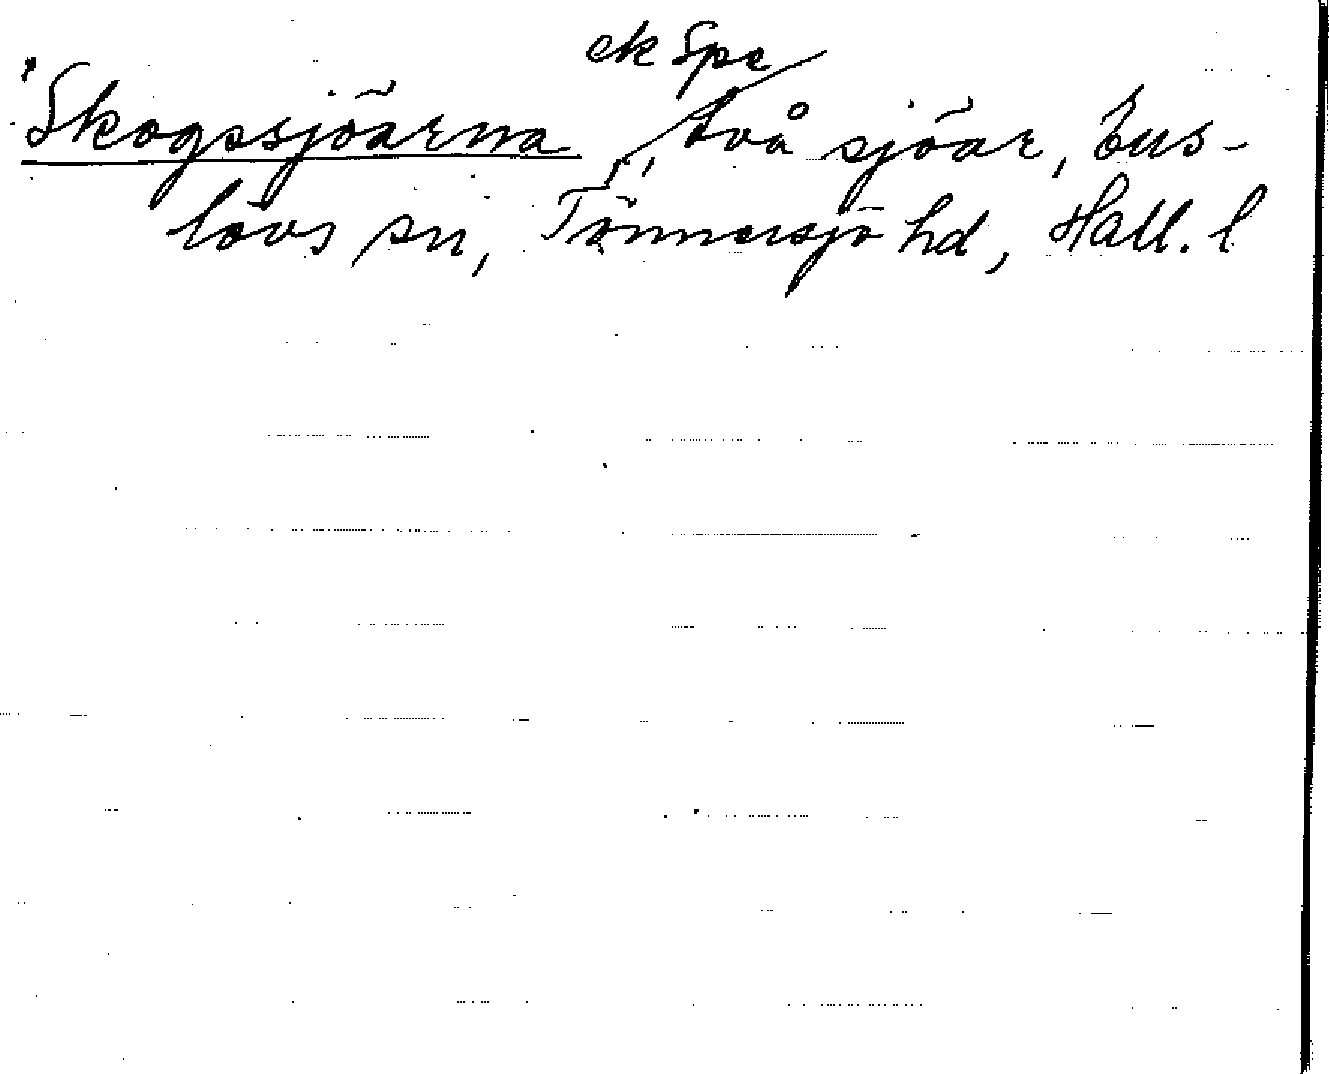 ek Spe
Skogssjöarna, två sjöar, Eus-
lövs sn, Tönnersjö hd, Hall. l